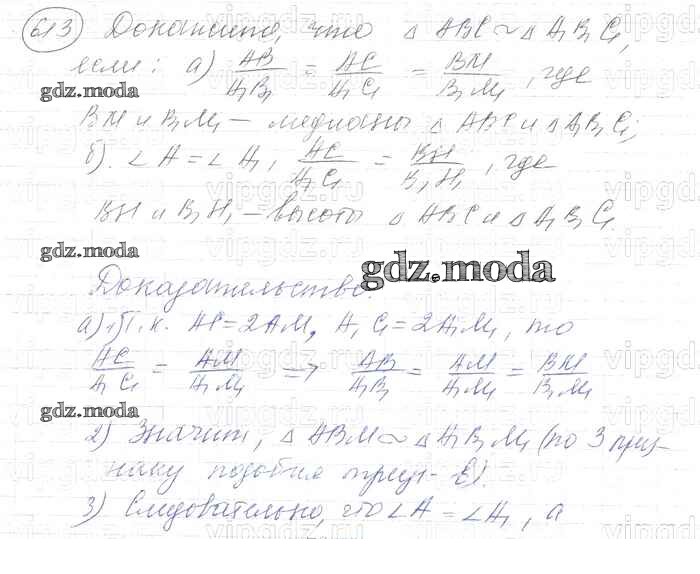 613 Докажите, что △ ABC ~ △ A₁B₁C₁,
если: а) AB/A₁B₁ = AC/A₁C₁ = BM/B₁M₁, где
gdz.moda
BM и B₁M₁ – медианы △ ABC и △ A₁B₁C₁;
б). ∠A = ∠A₁, AC/A₁C₁ = BH/B₁H₁, где
BH и B₁H₁ – высоты △ ABC и △ A₁B₁C₁.
gdz.moda
gdz.moda
Доказательство.
а) 1) Т.к. AC = 2AM, A₁C₁ = 2A₁M₁, то
AC/A₁C₁ = AM/A₁M₁ => AB/A₁B₁ = AM/A₁M₁ = BM/B₁M₁
gdz.moda
2) Значит, △ ABM ~ △ A₁B₁M₁ (по 3 приз-
наку подобия треуг-в).
3) Следовательно, что ∠A = ∠A₁, а